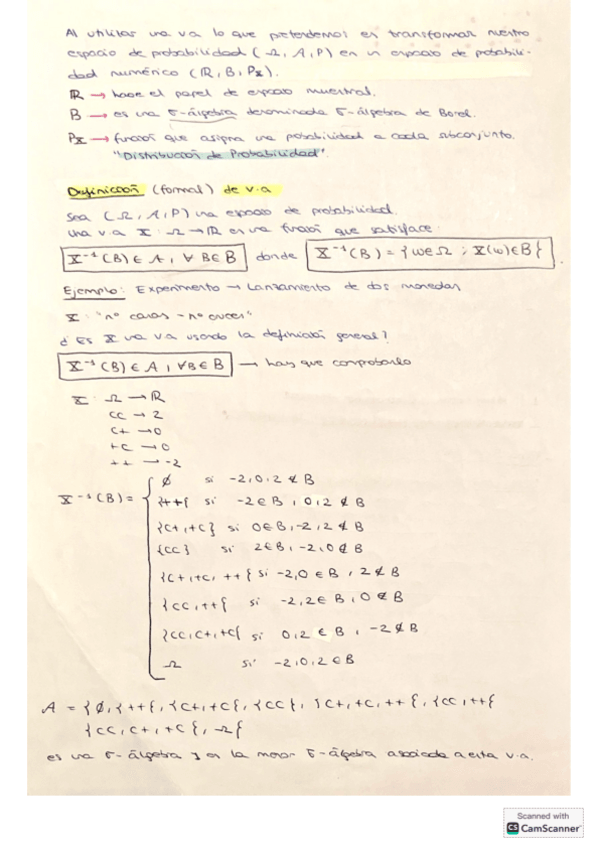 Al utilizar una va lo que pretendemos es transformar nuestro
espacio de probabilidad (Ω, A, P) en un espacio de probabili-
dad numérico (ℝ, B, Px).
ℝ → hace el papel de espacio muestral.
B → es una σ-álgebra denominada σ-álgebra de Borel.
Px → función que asigna una probabilidad a cada subconjunto.
"Distribución de Probabilidad".
Definición (formal) de v.a
Sea (Ω, A, P) una espacio de probabilidad.
Una v.a X: Ω → ℝ es una función que satisface:
X⁻¹(B) ∈ A, ∀ B ∈ B donde X⁻¹(B) = {ω ∈ Ω ; X(ω) ∈ B}.
Ejemplo: Experimento → Lanzamiento de dos monedas
X: "nº caras - nº cruces"
¿Es X una v.a usando la definición general?
X⁻¹(B) ∈ A, ∀ B ∈ B → hay que comprobarlo
X: Ω → ℝ
CC → 2
C+ → 0
+C → 0
++ → -2
X⁻¹(B) = { ∅ si -2, 0, 2 ∉ B
{++} si -2 ∈ B, 0, 2 ∉ B
{C+, +C} si 0 ∈ B, -2, 2 ∉ B
{CC} si 2 ∈ B, -2, 0 ∉ B
{C+, +C, ++} si -2, 0 ∈ B, 2 ∉ B
{CC, ++} si -2, 2 ∈ B, 0 ∉ B
{CC, C+, +C} si 0, 2 ∈ B, -2 ∉ B
Ω si -2, 0, 2 ∈ B
A = {∅, {++}, {C+, +C}, {CC}, {C+, +C, ++}, {CC, ++}
{CC, C+, +C}, Ω}
es una σ-álgebra y es la menor σ-álgebra asociada a esta v.a.
Scanned with
CS CamScanner